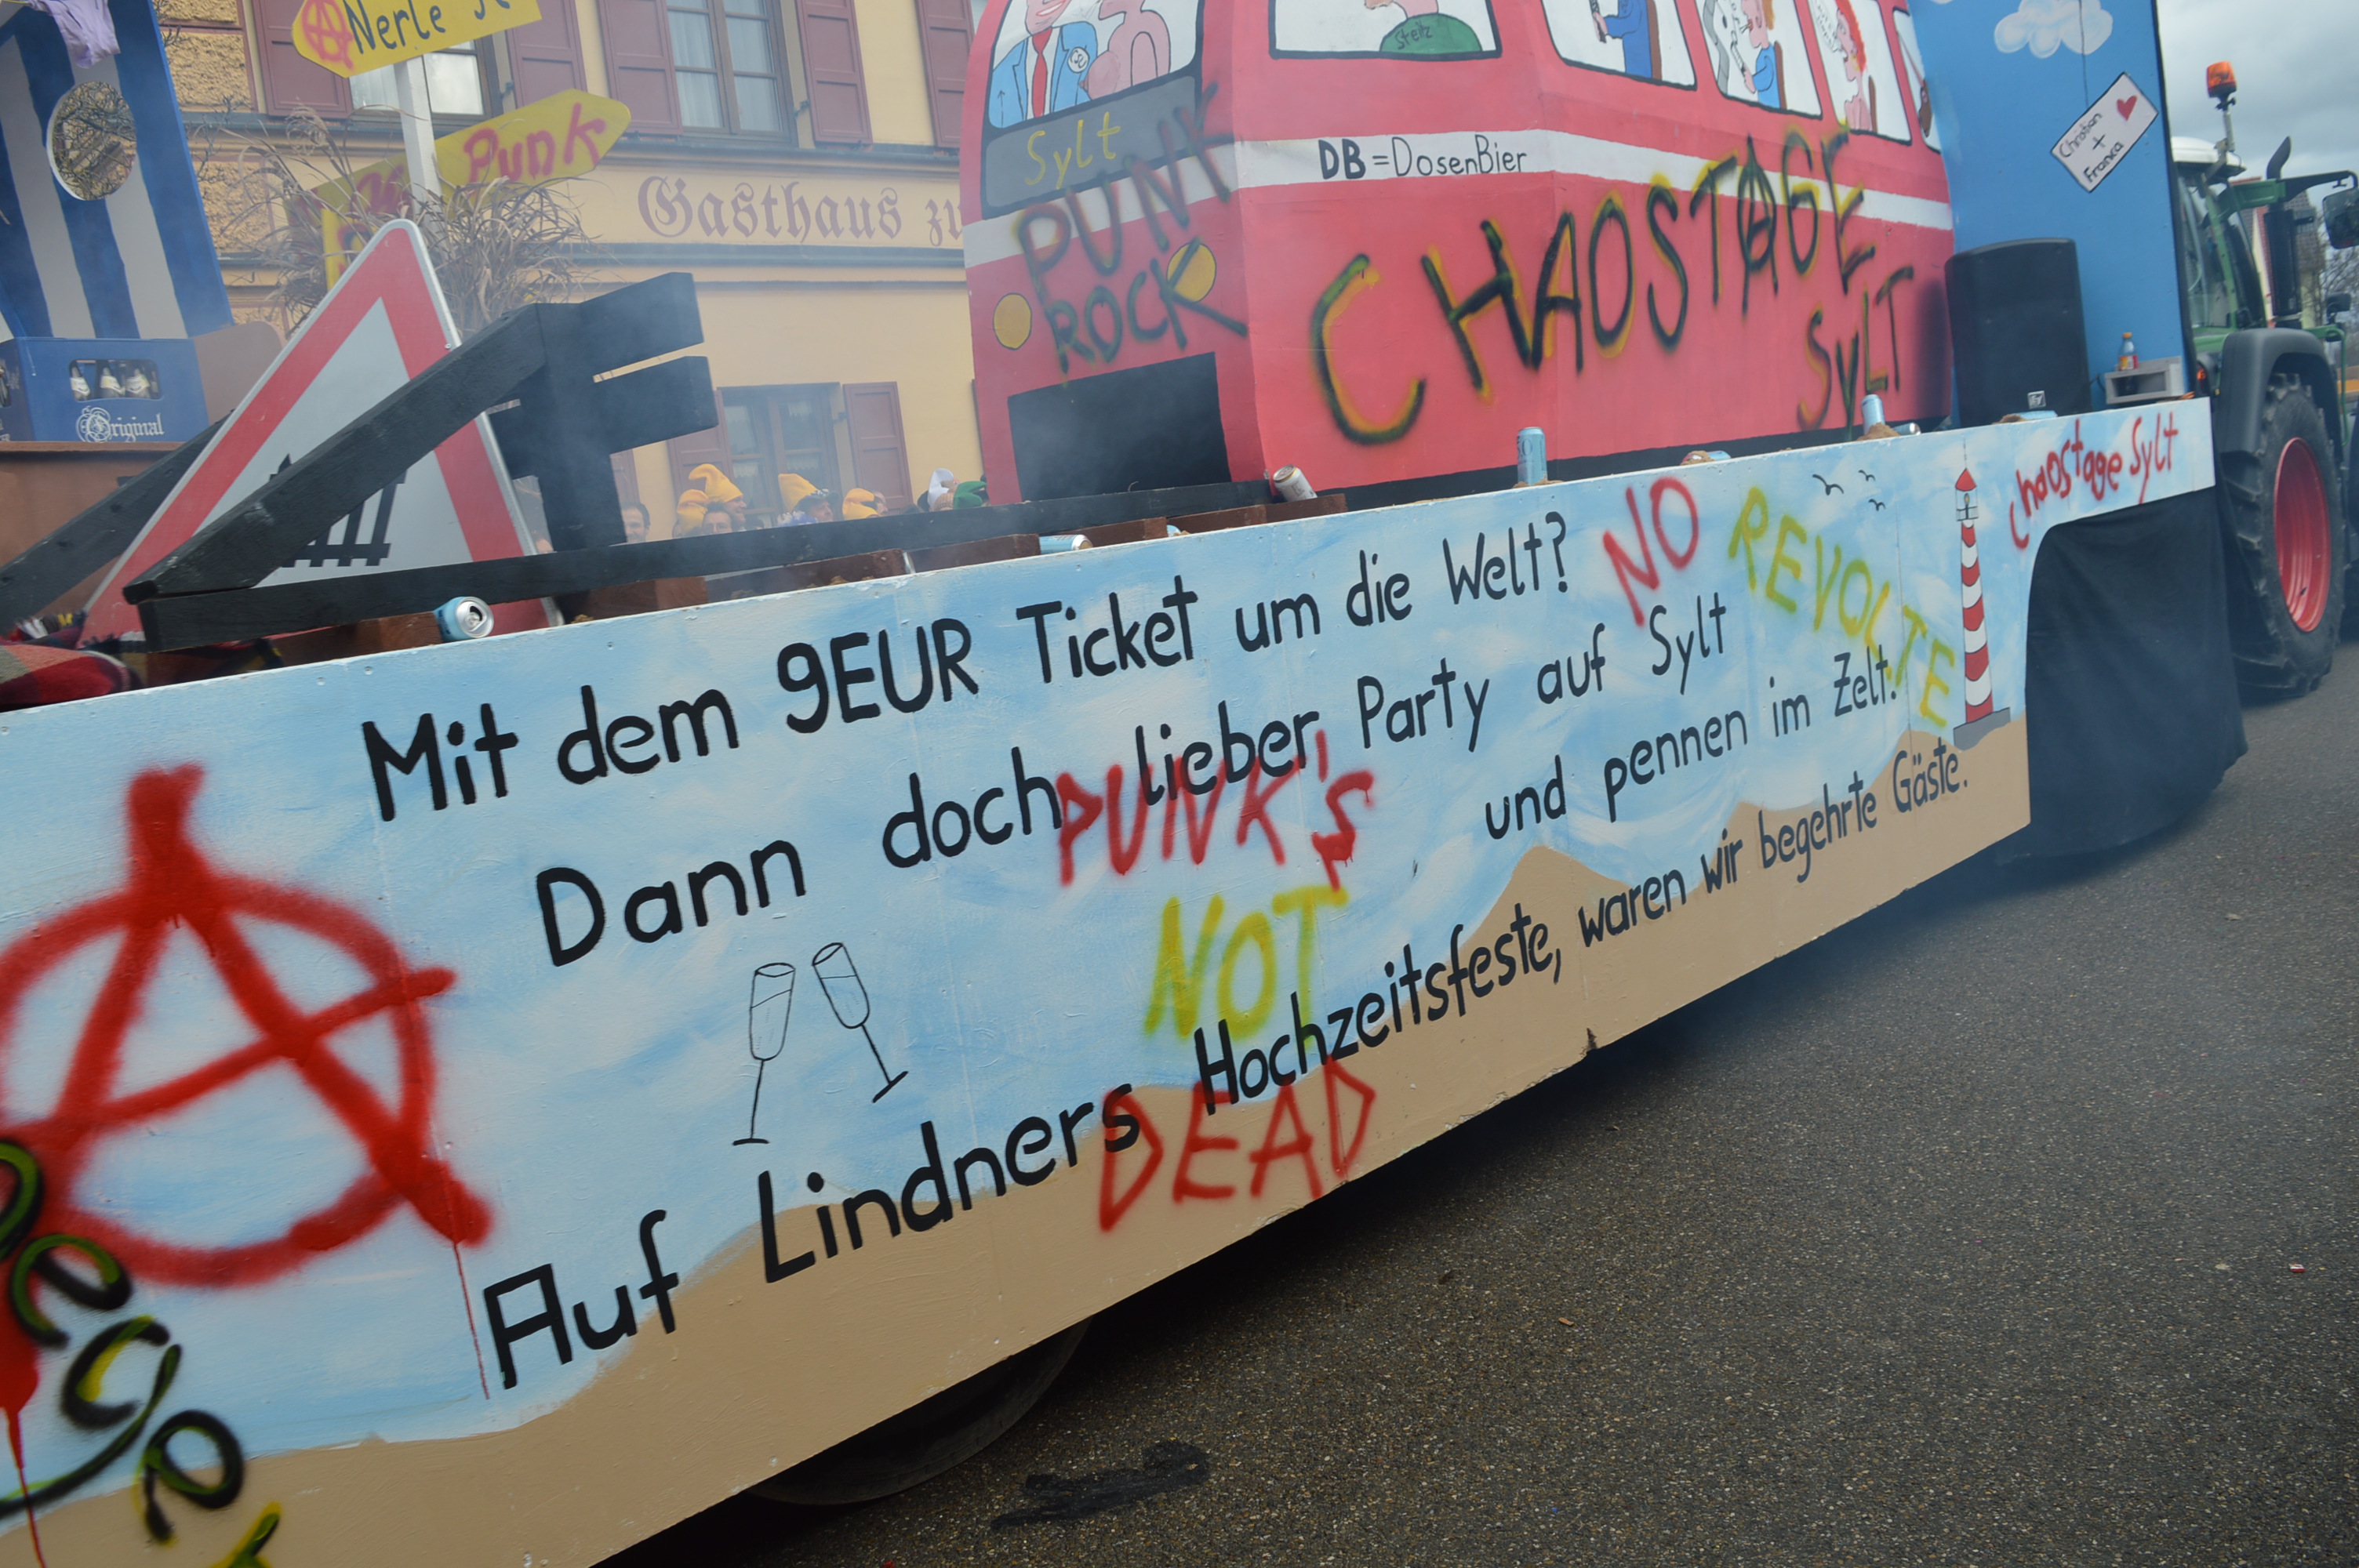 Nerle
Punk
Original
Gasthaus zu
Sylt
PUNK
ROCK
Steitz
DB = DosenBier
CHAOSTAGE
SYLT
Christian
+
Franca
Chaostage Sylt
Mit dem 9EUR Ticket um die Welt?
NO
REVOLTE
Dann doch lieber Party auf Sylt
und pennen im Zelt.
PUNK'S
NOT
DEAD
Auf Lindners Hochzeitsfeste, waren wir begehrte Gäste.